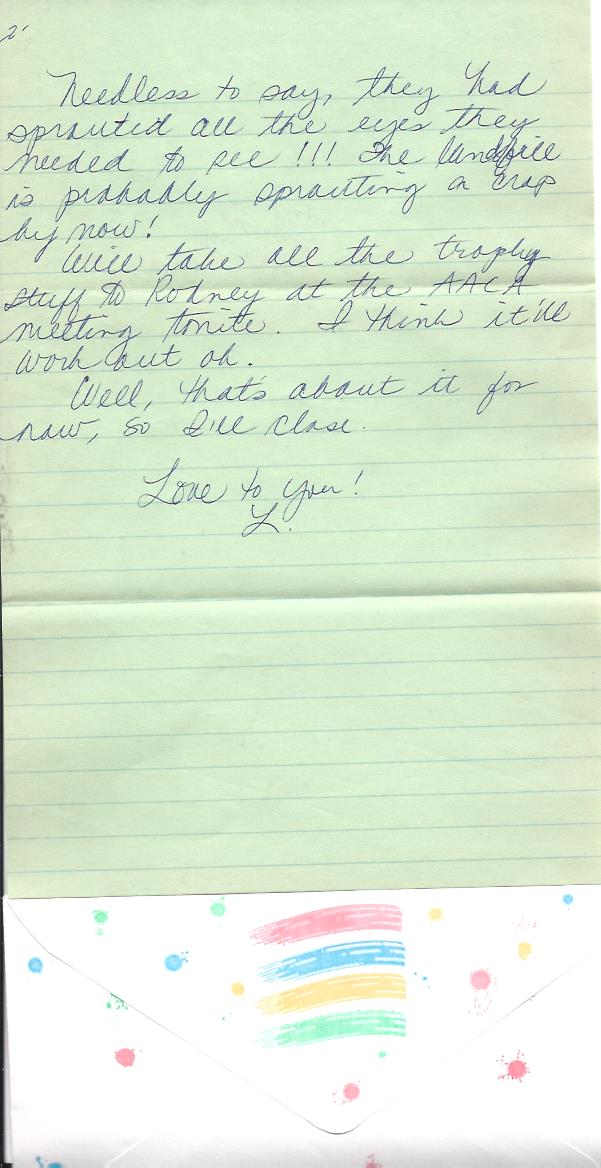 2
Needless to say, they had
sprouted all the eyes they
needed to see !!! The landfill
is probably sprouting a crop
by now!
Will take all the trophy
stuff to Rodney at the AACA
meeting tonite. I think it'll
work out ok.
Well, that's about it for
now, so I'll close.
Love to you!
L.